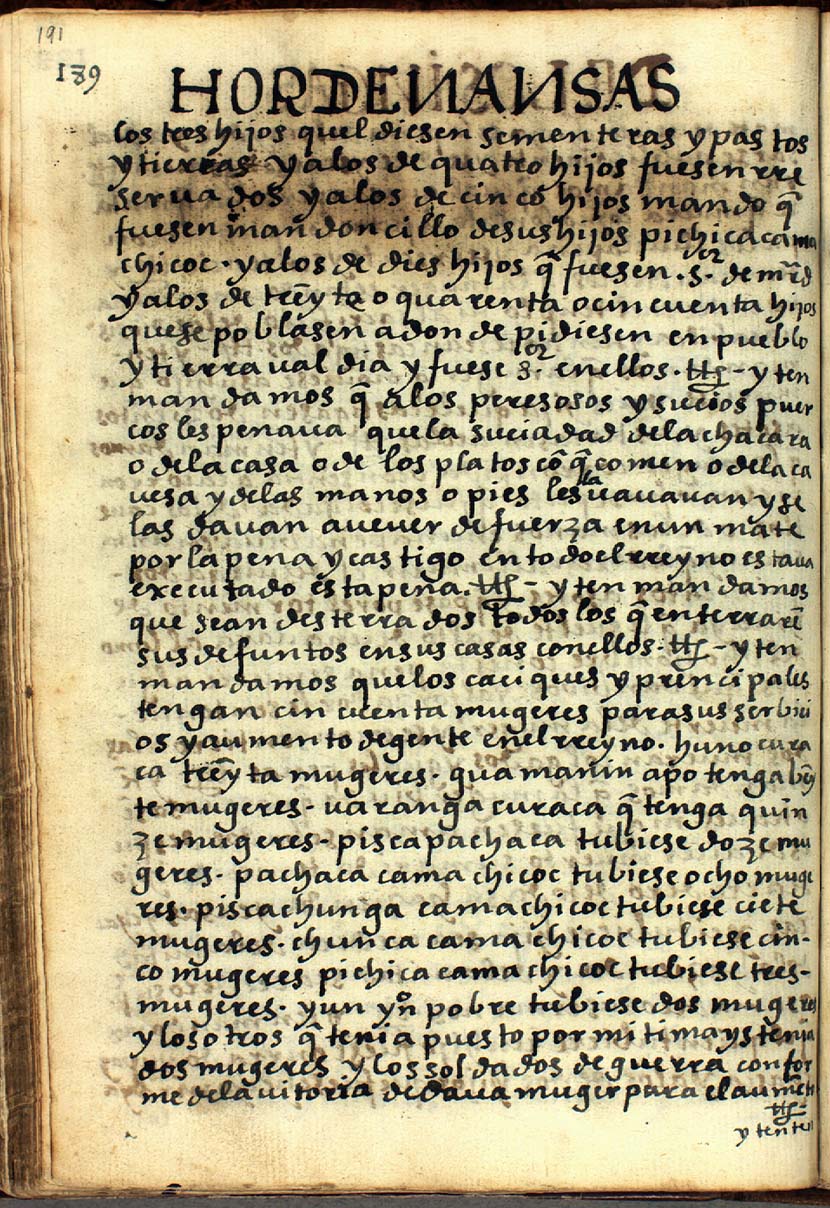 191
189
HORDENANSAS
los tres hijos quel diesen sementeras y pastos
y tierras y a los de quatro hijos fuesen rre
seruados y a los de cinco hijos mando q̃
fuesen mandoncillo de sus hijos pichicacama
chicoc. y a los de dies hijos q̃ fuesen .s.or de mr̃d
y a los de treỹta o quarenta o cincuenta hijos
que se poblasen adonde pidiesen en pueblo
y tierra ualdia y fuese s.or en ellos. - yten
mandamos q̃ a los peresosos y sucios puer
cos les penaua que la suciadad de la chacara
o de la casa o de los platos cõ q̃ comen o de la ca
uesa y de las manos o pies les la uauauan y se
las dauan a ueuer de fuerza en un mate
por la pena y castigo en todo el rreyno estaua
executado esta pena. - yten mandamos
que sean desterrados todos los q̃ enterrarẽ
sus defuntos en sus casas con ellos. - yten
mandamos que los caciques y prencipales
tengan cincuenta mugeres para sus serbici
os y aumento de gente en el rreyno. huno cura
ca treỹta mugeres. guamanin apo tenga bẽy
te mugeres. uaranga curaca q̃ tenga quin
ze mugeres. piscapachaca tubiese doze mu
geres. pachaca camachicoc tubiese ocho muge
res. piscachunga camachicoc tubiese ciete
mugeres. chunca camachicoc tubiese cin-
co mugeres pichicacamachicoc tubiese tres-
mugeres. y un yn.o pobre tubiese dos mugeres
y los otros q̃ tenia puesto por mitimays tenia
dos mugeres y los soldados de guerra confor
me de la uitoria de daua muger para el aumẽto
yten ten